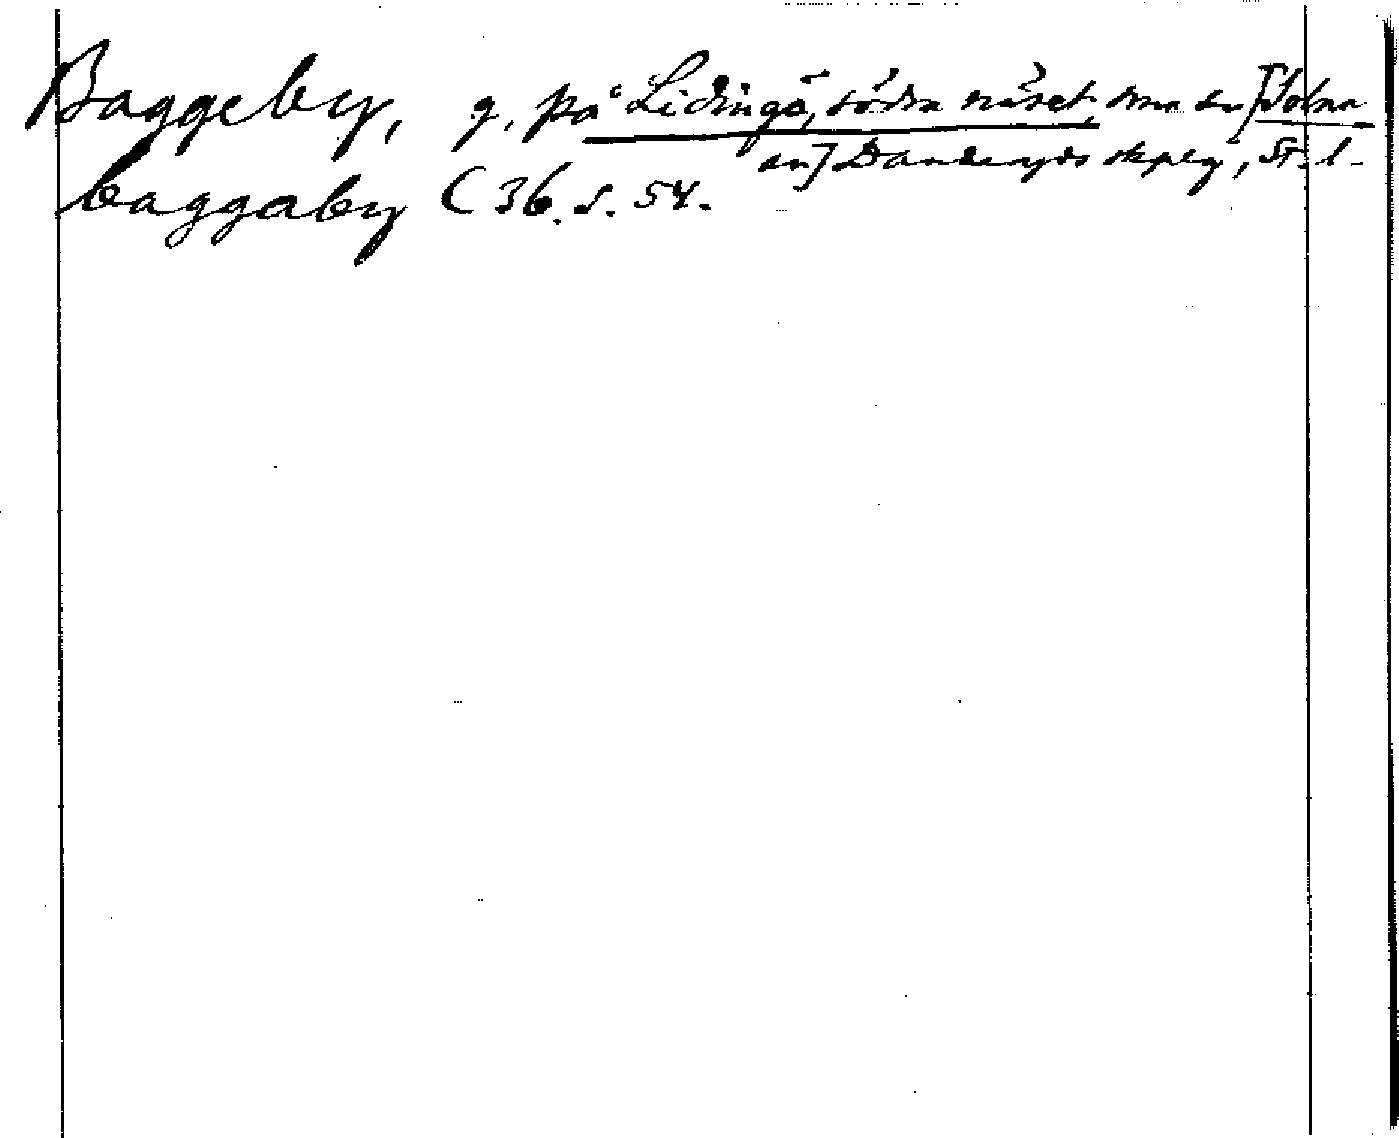 Baggeby, g. på Lidingö, södra näset, Solna
an] Danderyds skpleg, St. l.
baggaby C 36. s. 54.